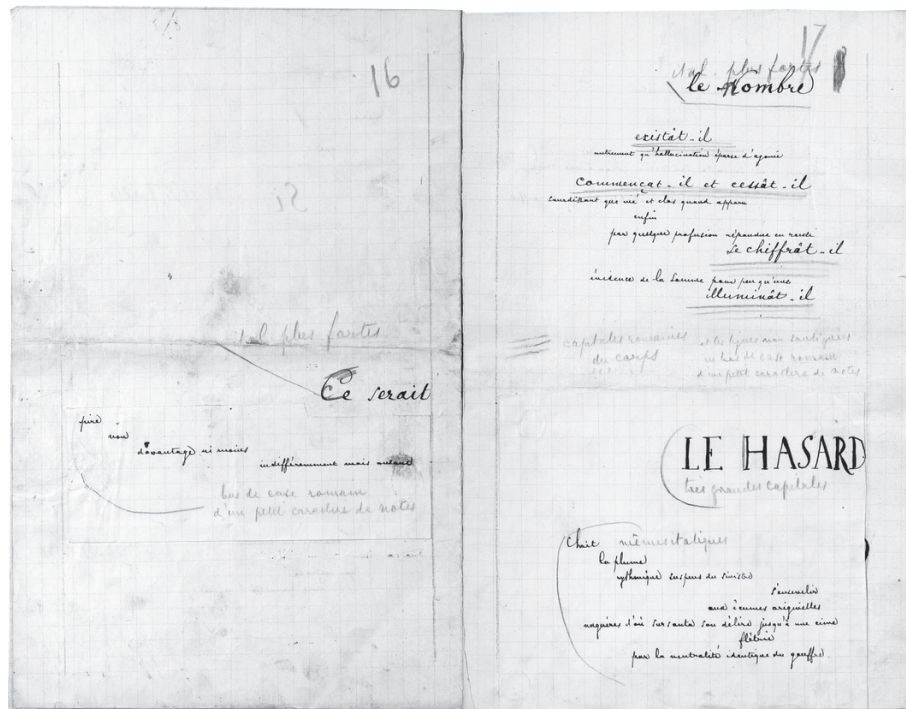 16
ital. plus fortes
Ce serait
pire
non
davantage ni moins
indifféremment mais autant
bas de casse romain
d'un petit caractère de notes
17
ital. plus fortes
le nombre
existât-il
autrement qu'hallucination éparse d'agonie
commençât-il et cessât-il
sourdant que nié et clos quand apparu
enfin
par quelque profusion répandue en rareté
Se chiffrât-il
évidence de la somme pour peu qu'une
illuminât-il
capitales romaines
du corps
et les lignes non soulignées
en bas de casse romain
d'un petit caractère de notes
LE HASARD
très grandes capitales
Choit mêmes italiques
la plume
rythmique suspens du sinistre
s'ensevelir
aux écumes originelles
naguères d'où sursauta son délire jusqu'à une cime
flétrie
par la neutralité identique du gouffre